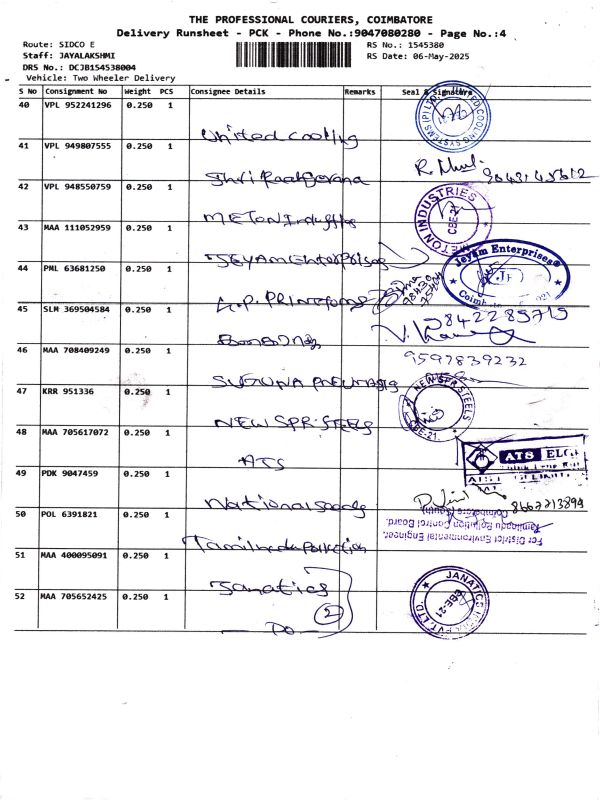 THE PROFESSIONAL COURIERS, COIMBATORE
Delivery Runsheet - PCK - Phone No.:9047080280 - Page No.:4
Route: SIDCO E
RS No.: 1545380
Staff: JAYALAKSHMI
RS Date: 06-May-2025
DRS No.: DCJB154538004
Vehicle: Two Wheeler Delivery
S No Consignment No Weight PCS Consignee Details Remarks Seal & Signature
40 VPL 952241296 0.250 1 United cooling
41 VPL 949807555 0.250 1 Shri
42 VPL 948550759 0.250 1 METON Industries
43 MAA 111052959 0.250 1 JEYAM Enterprises
Jeyam Enterprises
44 PML 63681250 0.250 1
45 SLM 369504584 0.250 1
9842285715
46 MAA 708409249 0.250 1 SUGUNA PNEUMATIS
9597839232
47 KRR 951336 0.250 1 NEW SPR STEELS
NEW SPR STEELS
CBE-21.
48 MAA 705617072 0.250 1 ATS
ATS ELGI
49 PDK 9047459 0.250 1 National
8667213899
50 POL 6391821 0.250 1 Tamilnadu Pollution
For District Environmental Engineer,
Tamilnadu Pollution Control Board,
Coimbatore (South)
51 MAA 400095091 0.250 1 Janatics
52 MAA 705652425 0.250 1 DO
2
JANATICS
PVT. LTD.
CBE-21